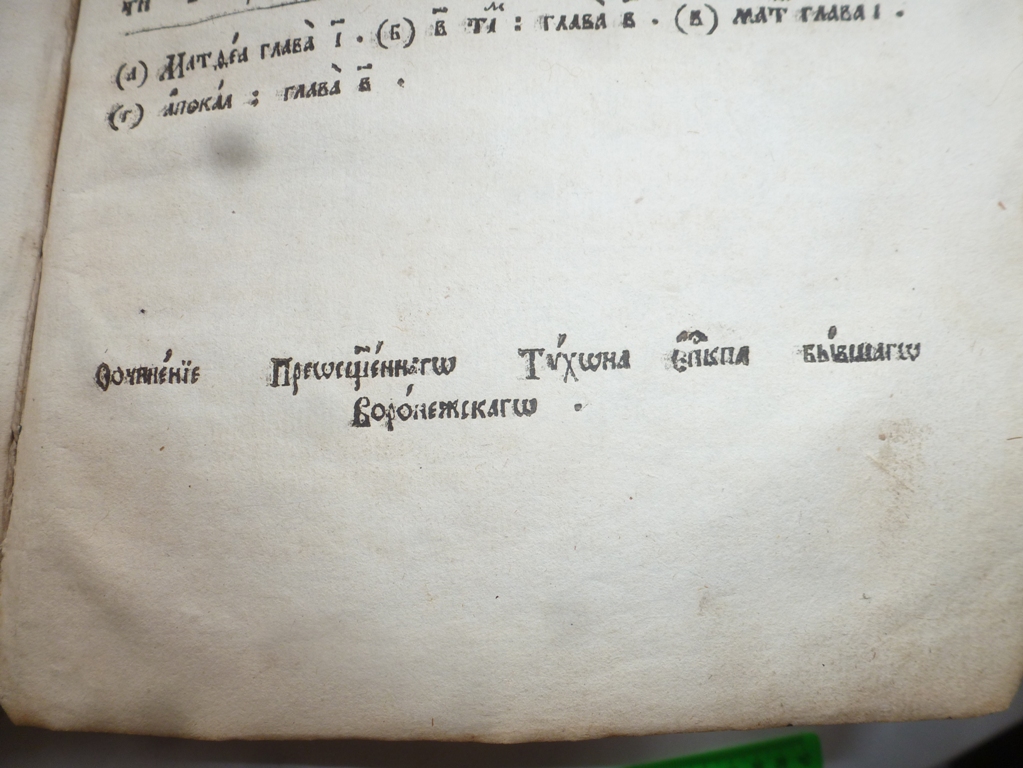 (а) Матѳе́а глава̀ і҃ . (б) в҃ тїⷨ : глава̀ в҃ . (в) мат҃ глава і .
(г) а҆пока́л : глава̀ в҃ .
Сочине́нїе Преѡсщ҃е́ннагѡ Тѵ́хѡна є҆пⷭ҇кпа бы́вшагѡ
Воро́нежскагѡ .